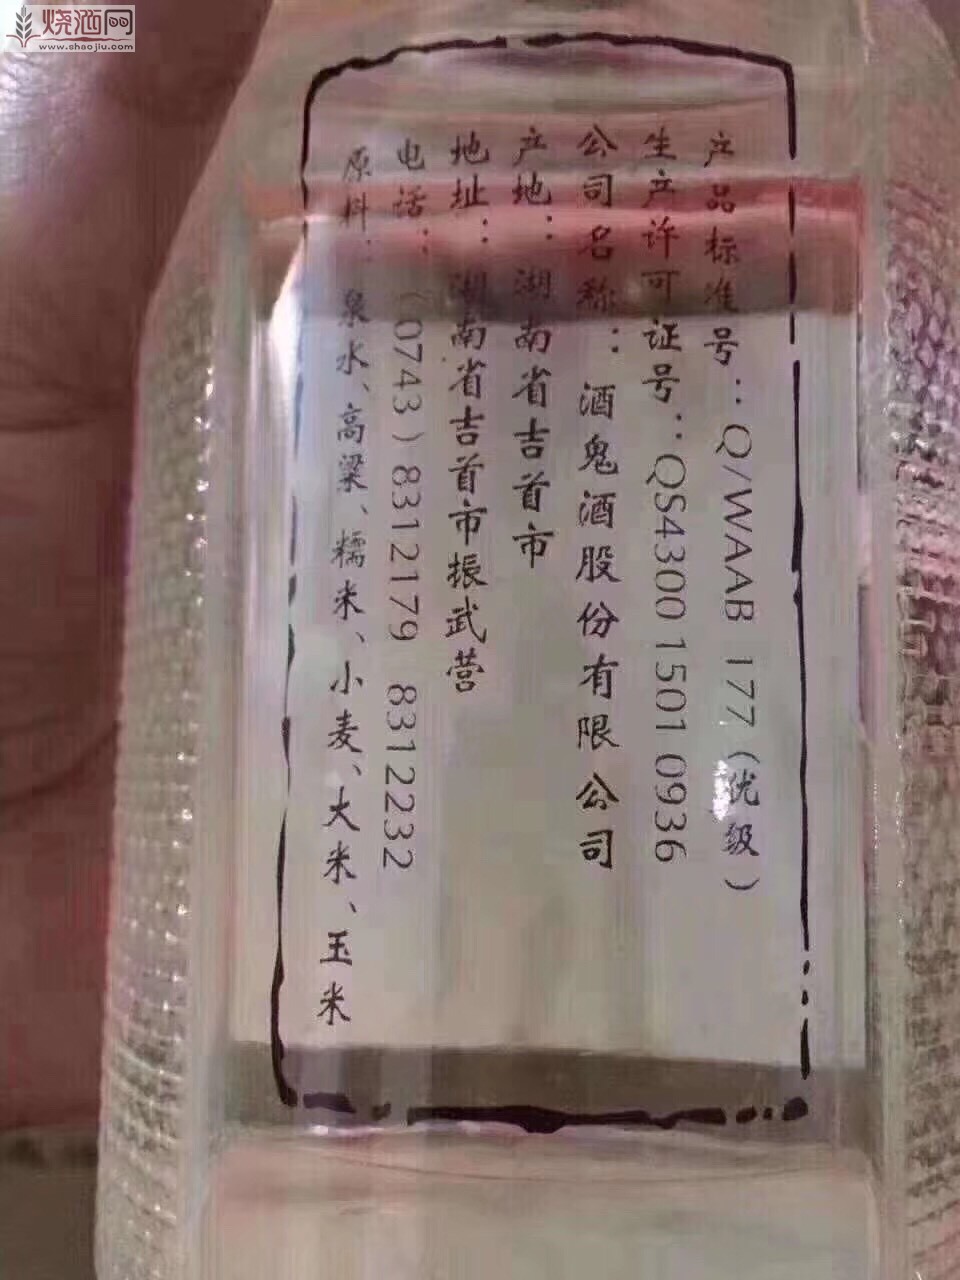 烧酒网
www.shaojiu.com
产品标准号：Q/WAAB 177（优级）
生产许可证号：QS4300 1501 0936
公司名称：酒鬼酒股份有限公司
产地：湖南省吉首市
地址：湖南省吉首市振武营
电话：（0743）8312179 8312232
原料：泉水、高粱、糯米、小麦、大米、玉米